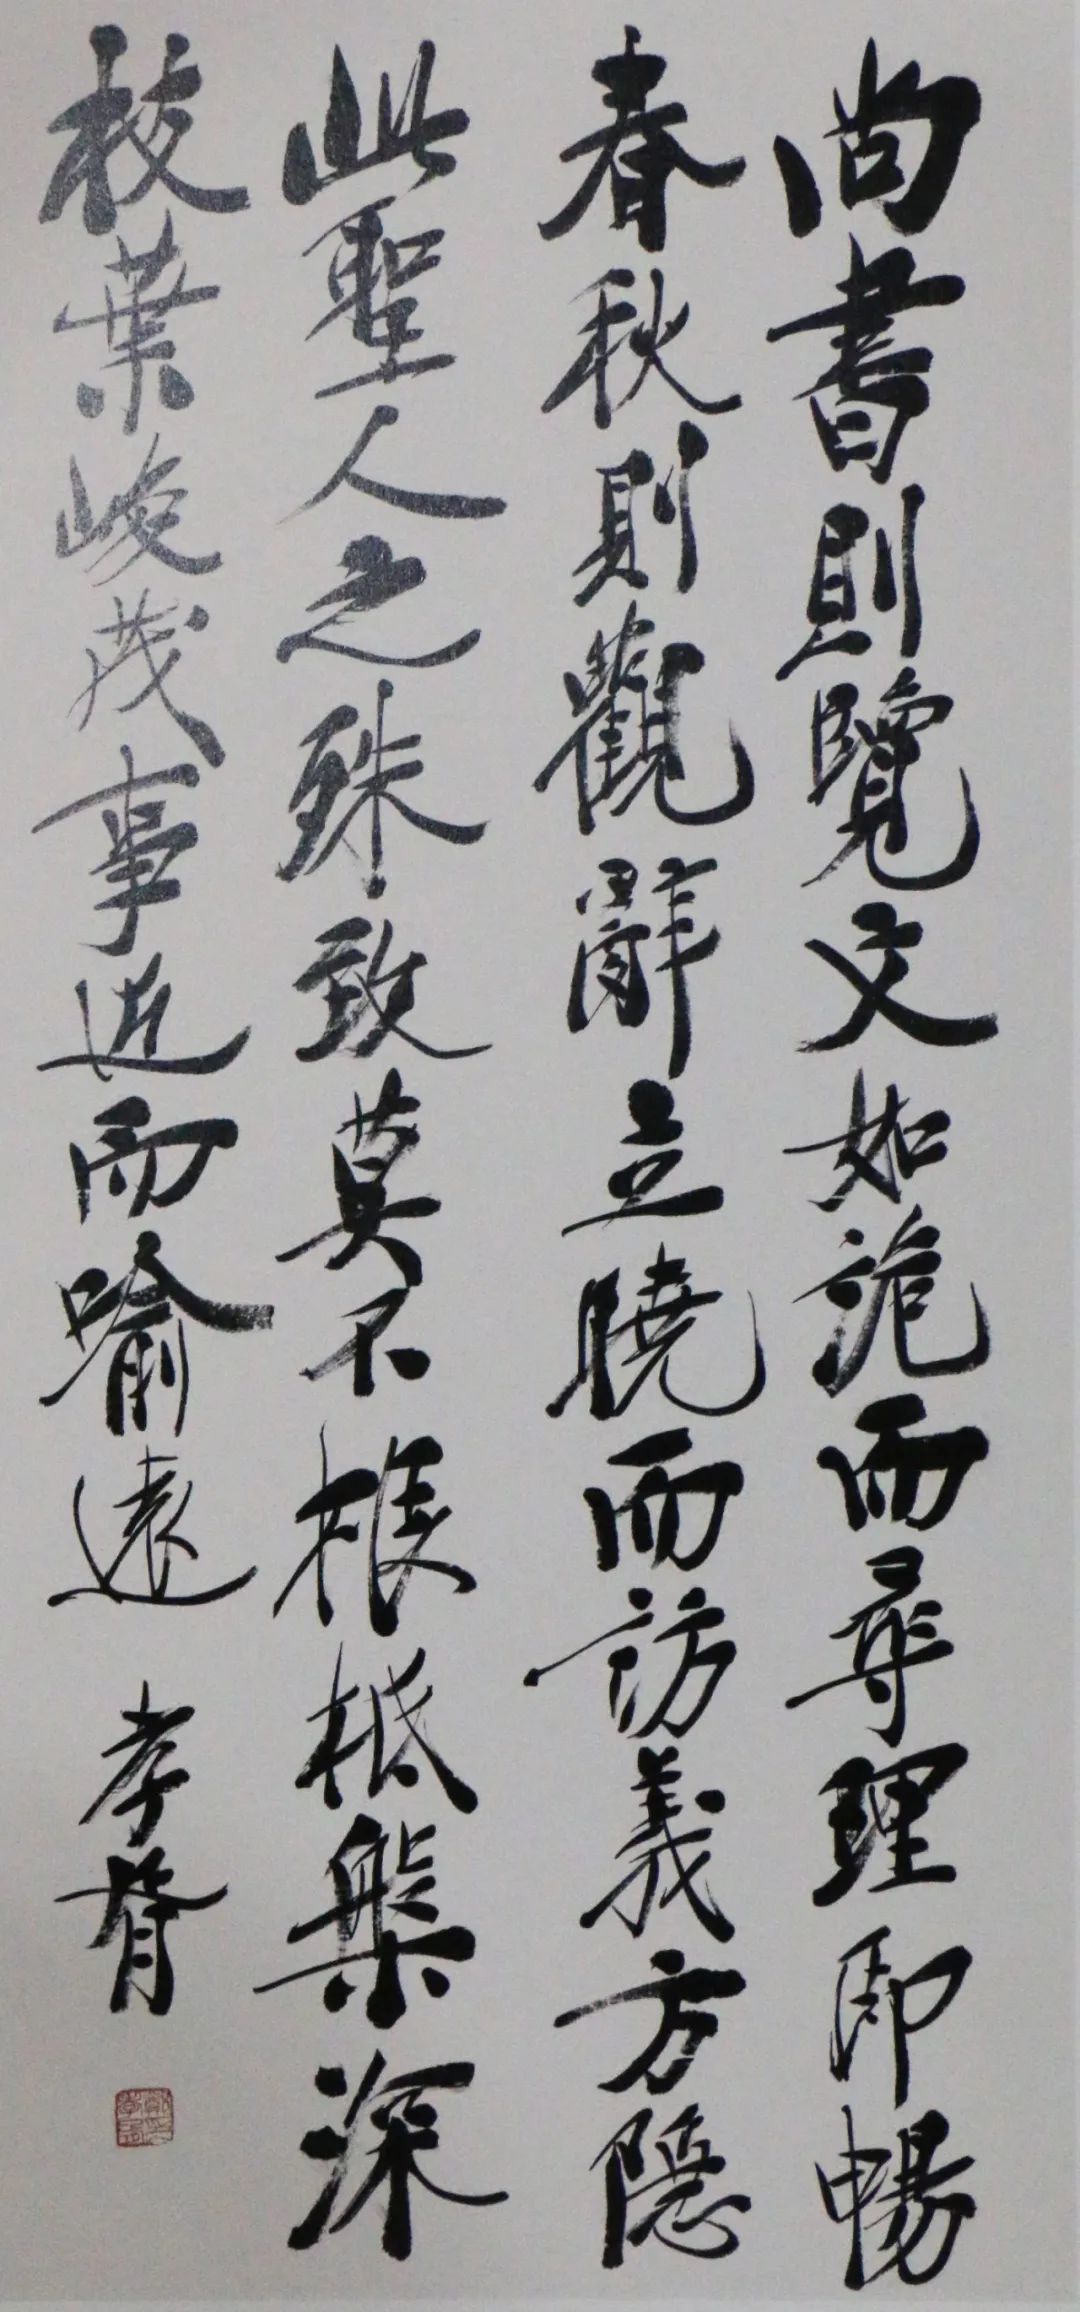 尚書則覽文如詭而尋理即暢
春秋則觀辭立曉而訪義方隱
此聖人之殊致莫不根柢槃深
枝葉峻茂事近而喻遠 孝胥